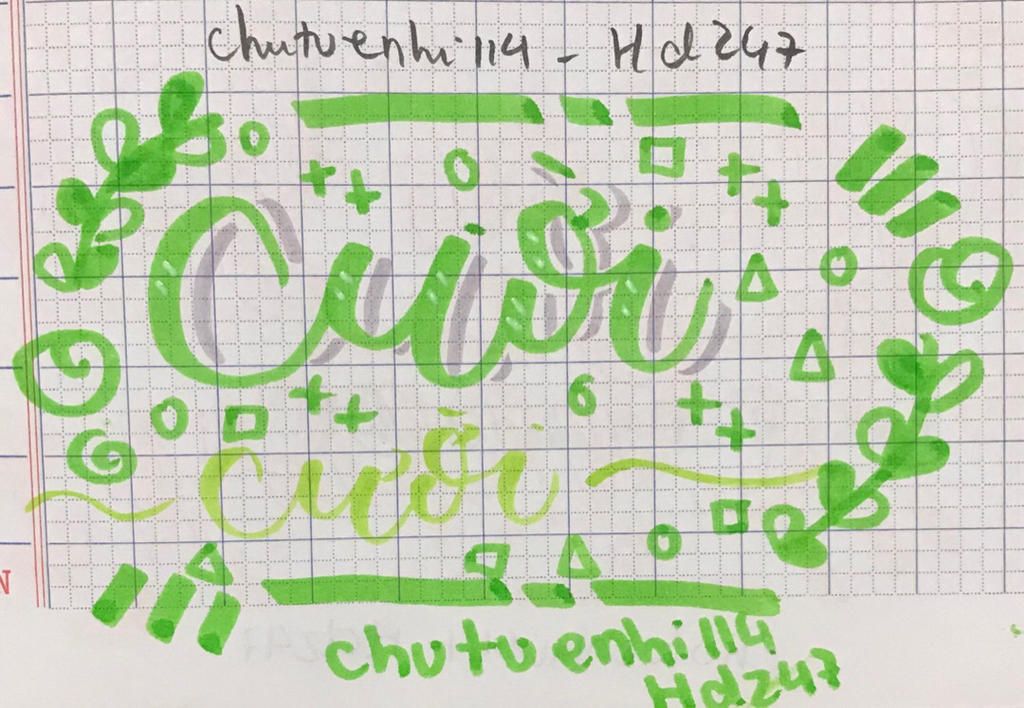 chutuenhi114 - Hd247
Cười
cười
N
chutuenhi114
Hd247